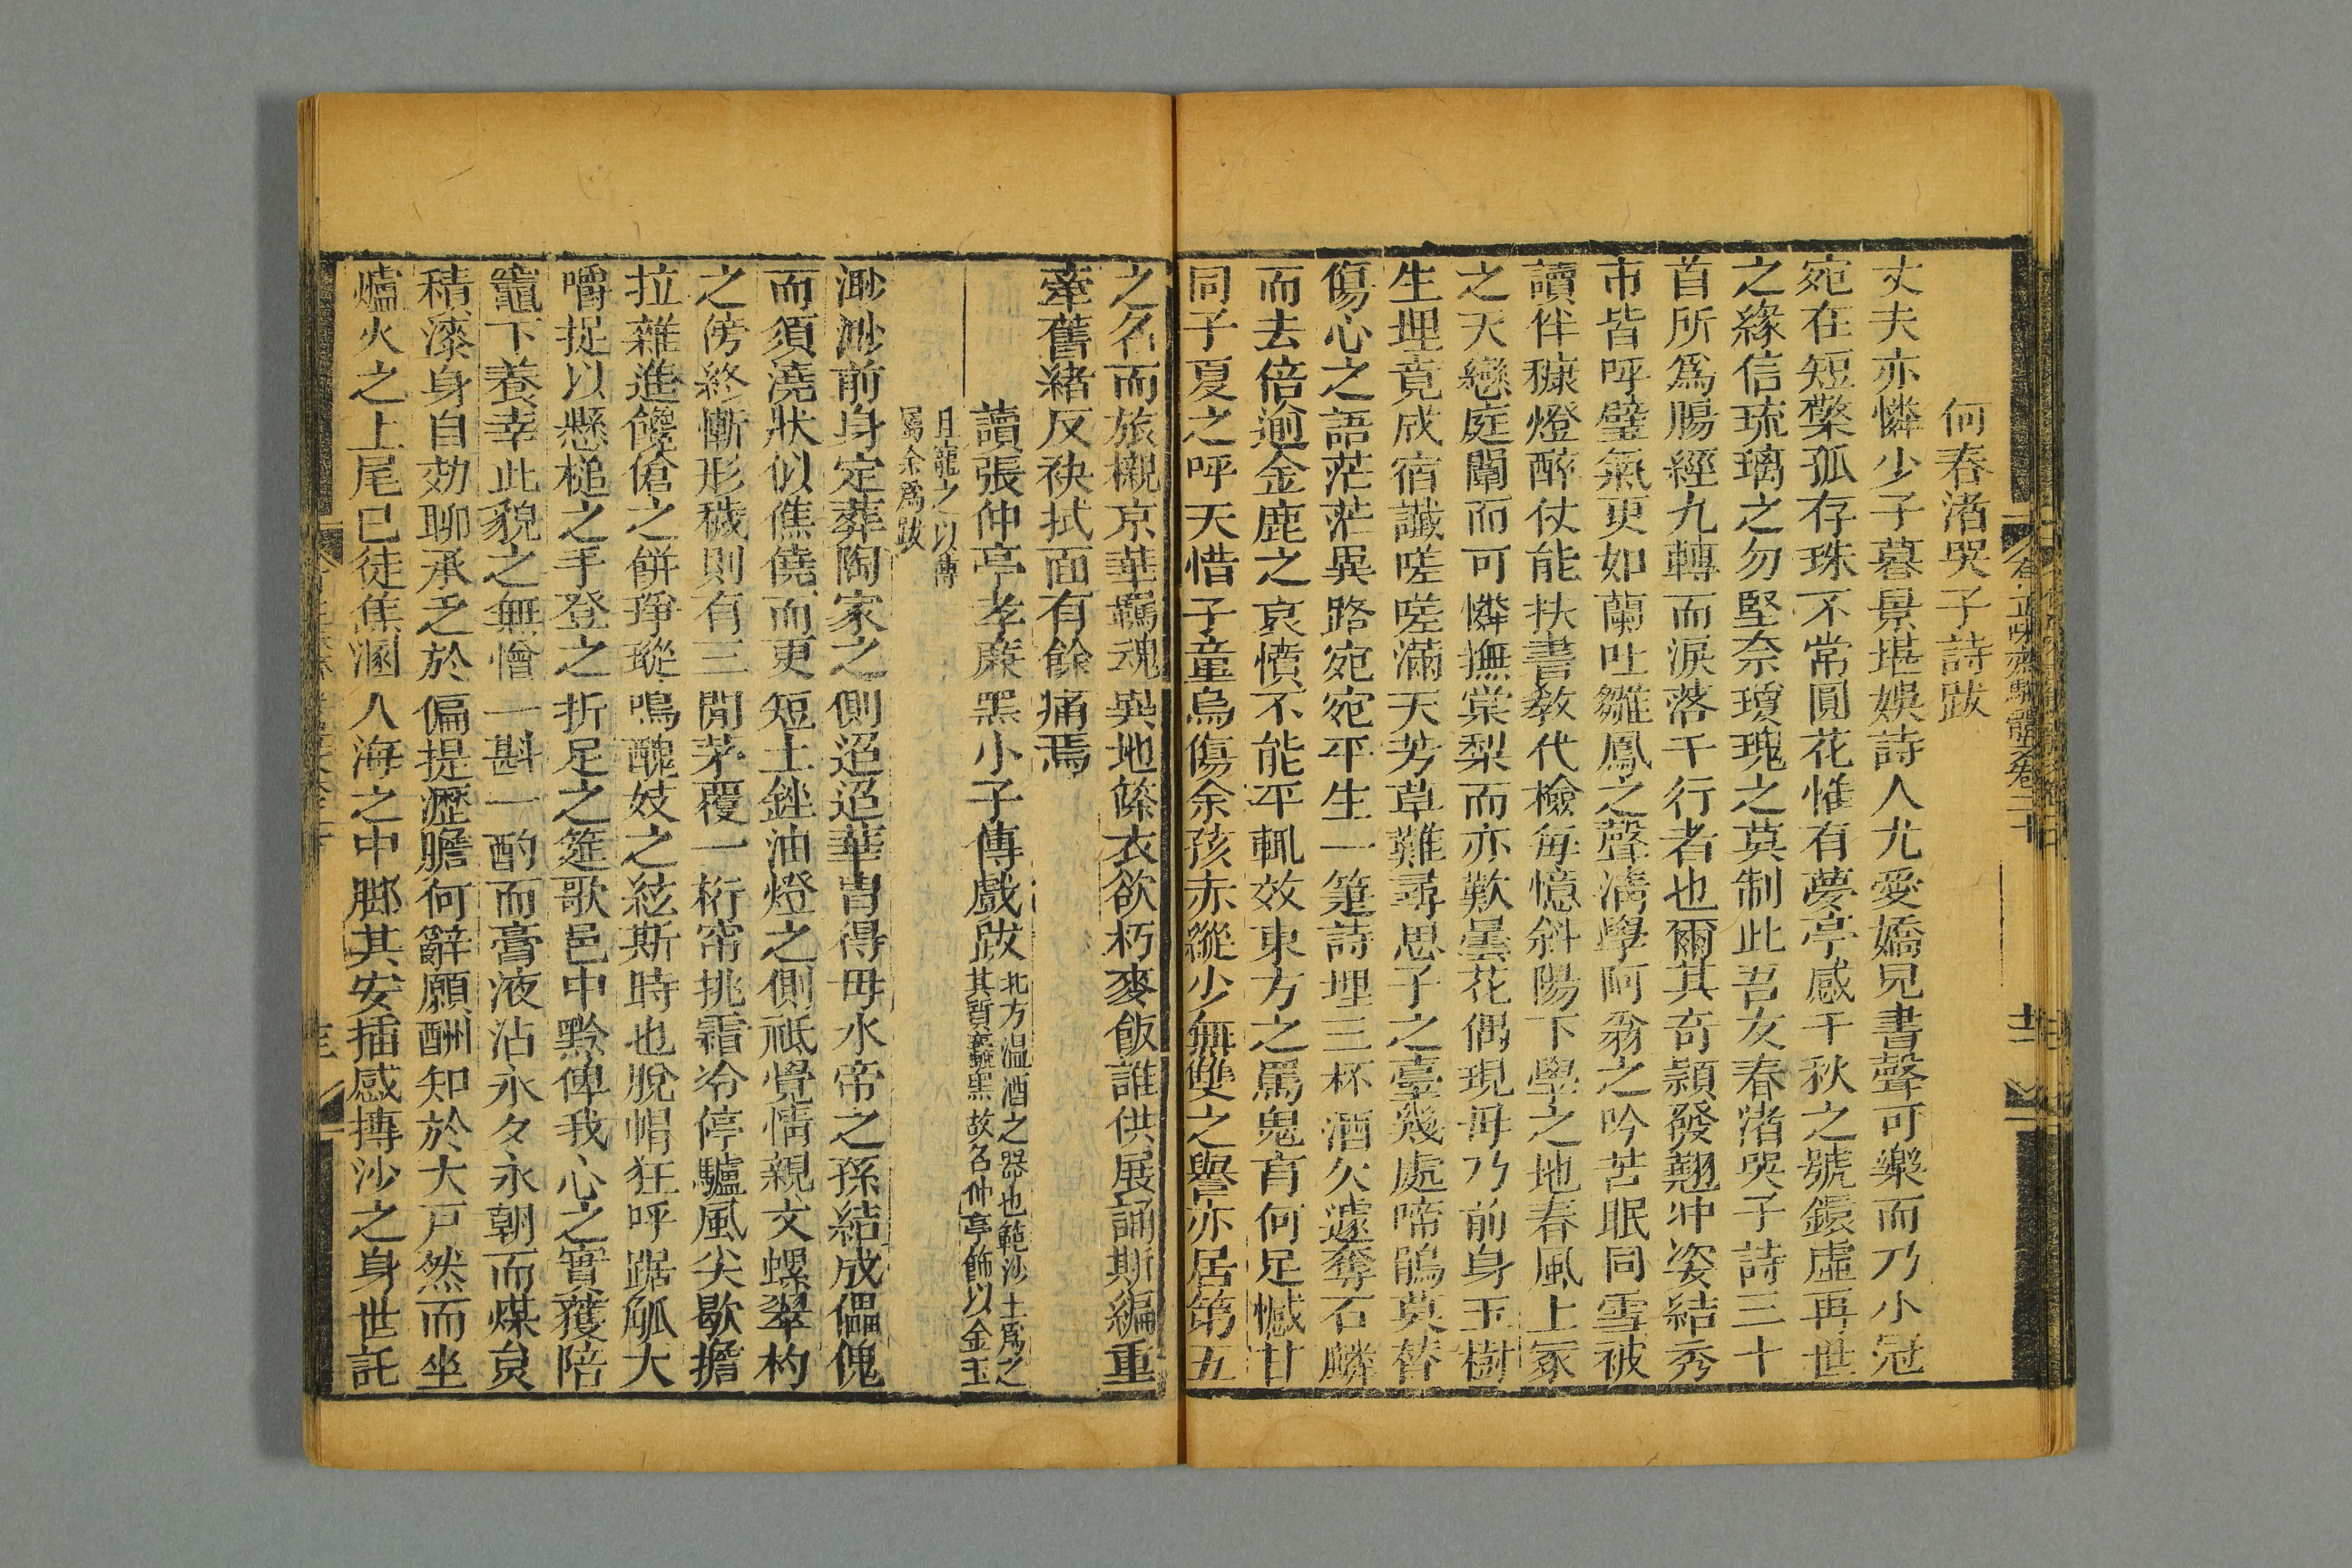 何春渚哭子詩跋
丈夫亦憐少子暮景堪娛詩人尤愛嬌兒書聲可樂而乃小冠
宛在短檠孤存珠不常圓花惟有夢亭感千秋之號鐶虛再世
之緣信琉璃之勿堅奈瓊瑰之莫制此吾友春渚哭子詩三十
首所為腸經九轉而淚落千行者也爾其奇穎發翹冲姿結秀
市皆呼璧氣更如蘭吐雛鳳之聲清學阿翁之吟苦眠同雪被
讀伴穅燈醉仗能扶書教代檢每憶斜陽下學之地春風上冢
之天戀庭闈而可憐撫棠梨而亦歎曇花偶現毋乃前身玉樹
生埋竟成宿讖嗟嗟滿天芳草難尋思子之臺幾處啼鵑莫替
傷心之語茫茫異路宛宛平生一箑詩埋三杯酒欠遽奪石麟
而去倍逾金鹿之哀憤不能平輒效東方之罵鬼育何足憾甘
同子夏之呼天惜子童烏傷余孩赤縱少無雙之譽亦居第五
之名而旅櫬京華羈魂異地篨衣欲朽麥飯誰供展誦斯編重
牽舊緒反袂拭面有餘痛焉
讀張仲亭孝廉黑小子傳戲跋
北方温酒之器也範沙土為之
其質麤黑故名仲亭飾以金玉
且寵之以傳
屬余為跋
渺渺前身定葬陶家之側迢迢華胄得毋水帝之孫結成儡傀
而須澆狀似僬僥而更短土銼油燈之側祇覺情親文螺翠杓
之傍終慚形穢則有三閒茅覆一桁帘挑霜冷停驢風尖歇擔
拉雜進饞傖之餅琤瑽鳴醜妓之絃斯時也脫帽狂呼踞觚大
嚼捉以懸槌之手登之折足之筵歌邑中黔俾我心之實獲陪
竈下養幸此貌之無憎一斟一酌而膏液沾永夕永朝而煤炱
積漆身自効聊承乏於偏提瀝膽何辭願酬知於大戶然而坐
爐火之上尾已徒焦溷人海之中腳其安插感摶沙之身世託